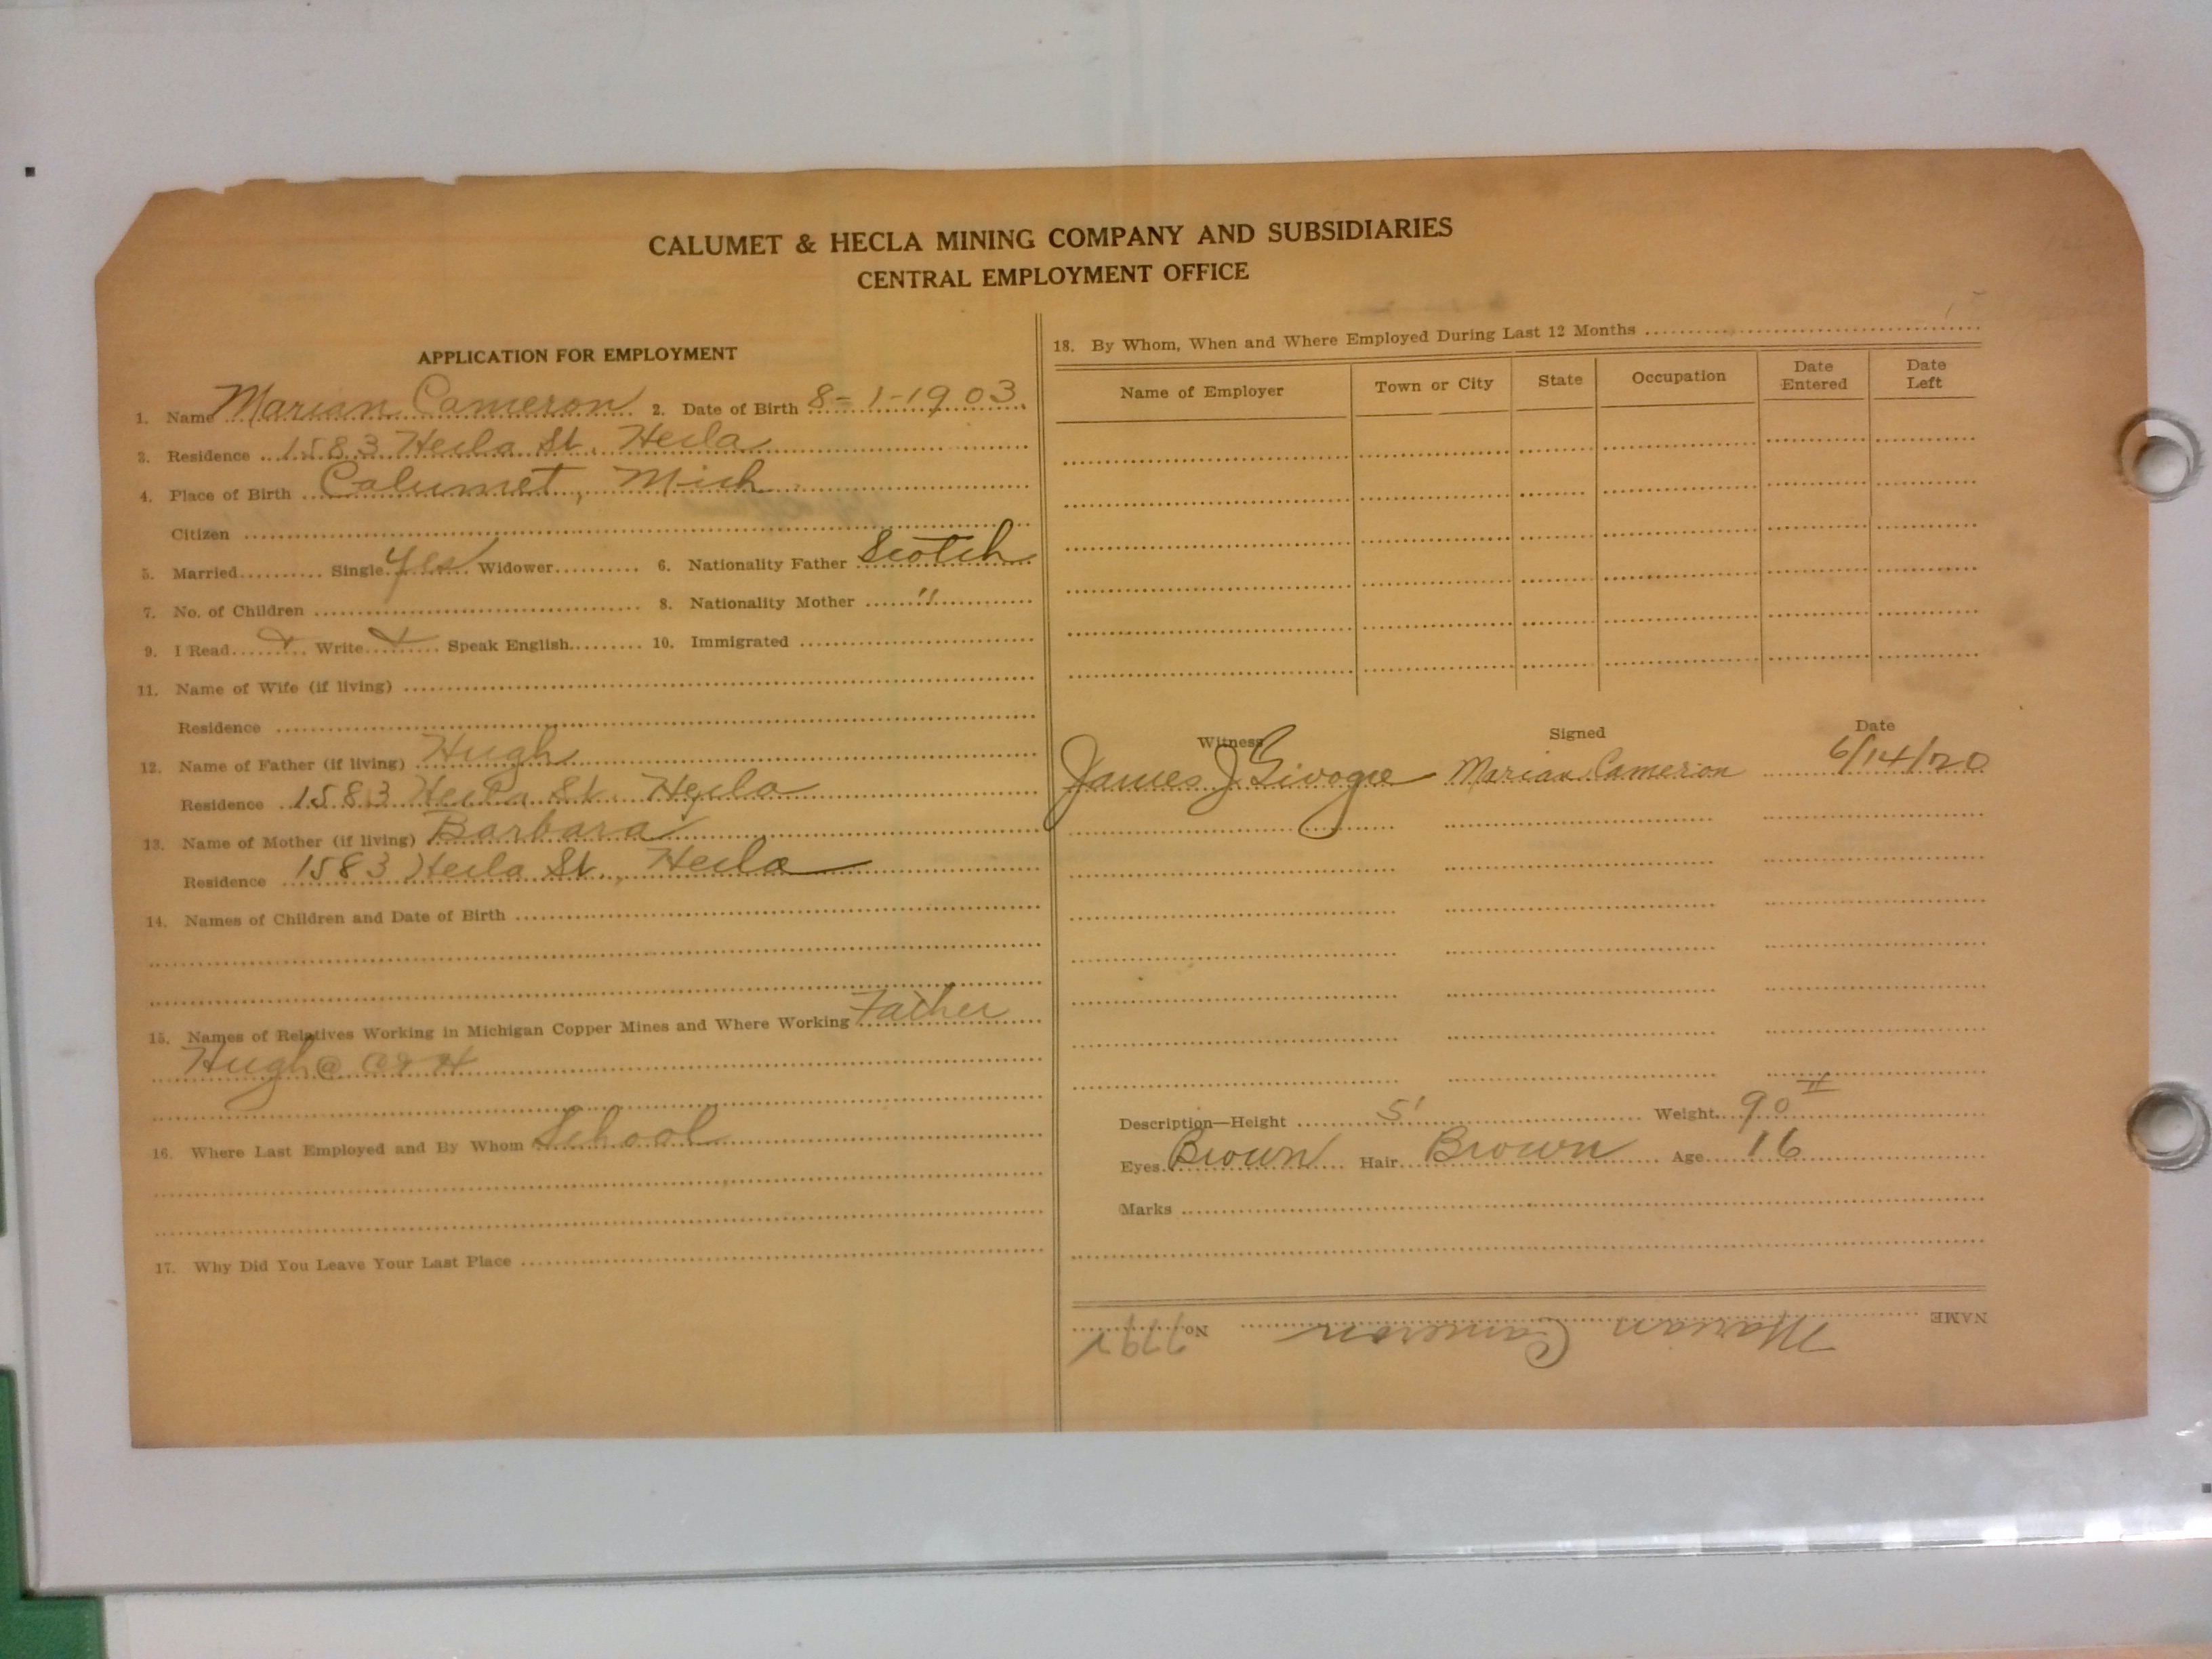 CALUMET & HECLA MINING COMPANY AND SUBSIDIARIES
CENTRAL EMPLOYMENT OFFICE
APPLICATION FOR EMPLOYMENT
1. Name Marian Cameron 2. Date of Birth 8-1-1903
3. Residence 1583 Hecla St. Hecla
4. Place of Birth Calumet, Mich
Citizen
5. Married Single yes Widower 6. Nationality Father Scotch
7. No. of Children 8. Nationality Mother "
9. I Read Write Speak English 10. Immigrated
11. Name of Wife (if living)
Residence
12. Name of Father (if living) Hugh
Residence 1583 Hecla St. Hecla
13. Name of Mother (if living) Barbara
Residence 1583 Hecla St., Hecla
14. Names of Children and Date of Birth
15. Names of Relatives Working in Michigan Copper Mines and Where Working Father
Hugh @ C & H
16. Where Last Employed and By Whom School
17. Why Did You Leave Your Last Place
18. By Whom, When and Where Employed During Last 12 Months
Name of Employer Town or City State Occupation Date Entered Date Left
Witness Signed Date
James J. Marian Cameron 6/14/20
Description—Height 5' Weight 90 #
Eyes Brown Hair Brown Age 16
Marks
NAME Marian Cameron No.